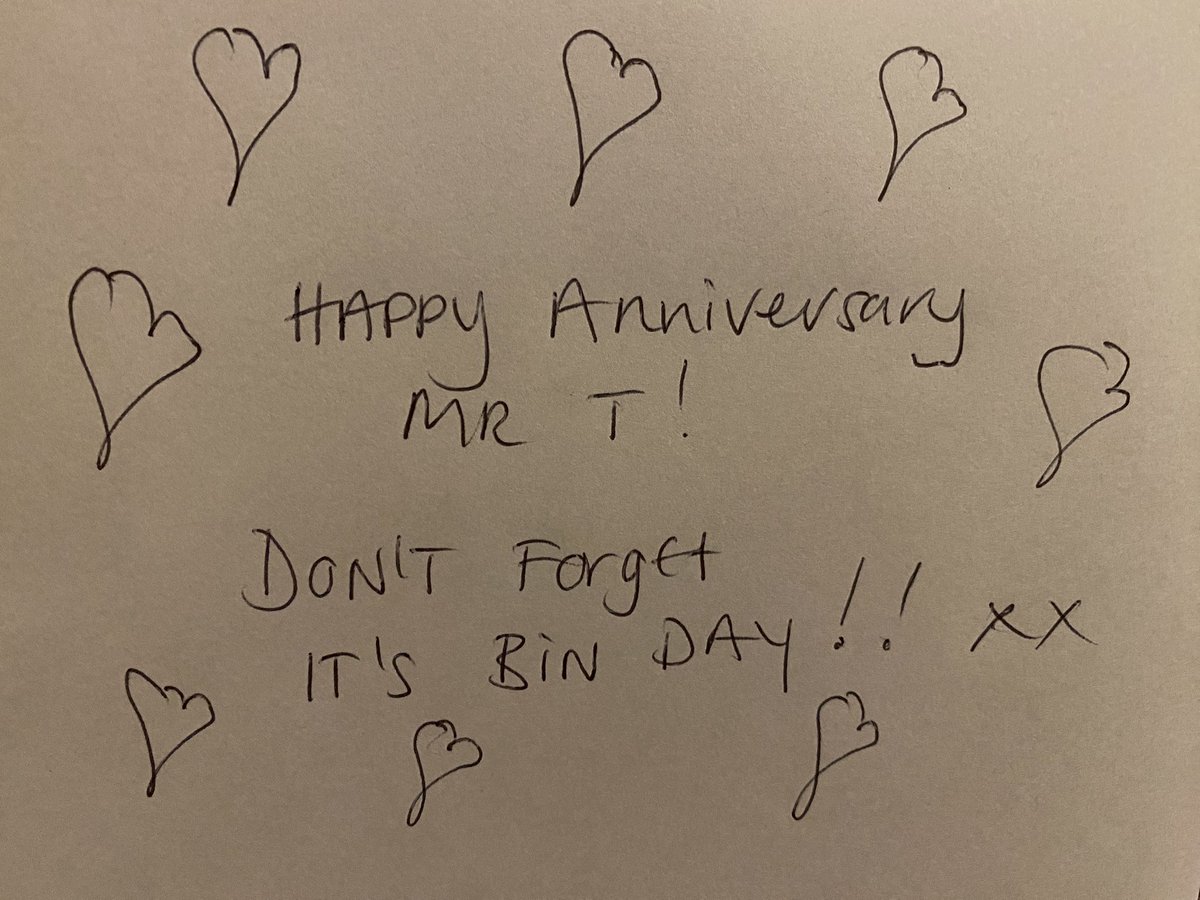 HAPPY Anniversary
MR T!
DON'T Forget
IT'S BIN DAY!! xx